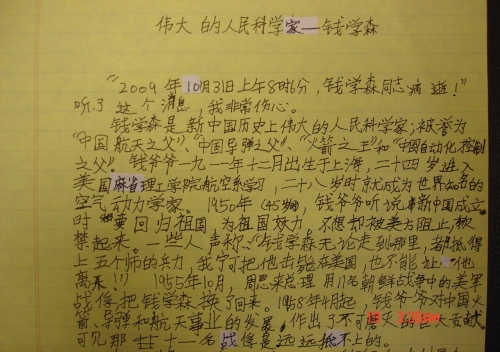 伟大的人民科学家—钱学森
"2009年10月31日上午8时6分,钱学森同志病逝!"
听了这个消息,我非常伤心。
钱学森是新中国历史上伟大的人民科学家;被誉为
"中国航天之父"、"中国导弹之父"、"火箭之王"和"中国自动化控制
之父"。钱爷爷一九一一年十二月出生于上海,二十四岁进入
美国麻省理工学院航空系学习,二十八岁时就成为世界知名的
空气动力学家。1950年(45岁),钱爷爷听说新中国成立
时要回归祖国为祖国效力不想却被美方阻止,软
禁起来。一些人声称:"钱学森无论走到哪里,都抵得
上五个师的兵力,我宁可把他击毙在美国,也不能让他
离开!"1955年10月,周恩来总理用11名朝鲜战争中的美军
战俘把钱学森换了回来。1958年4月起,钱爷爷对中国火
箭、导弹和航天事业的发展,作出了不可磨灭的巨大贡献
可见那十一名战俘是远远抵不上的。